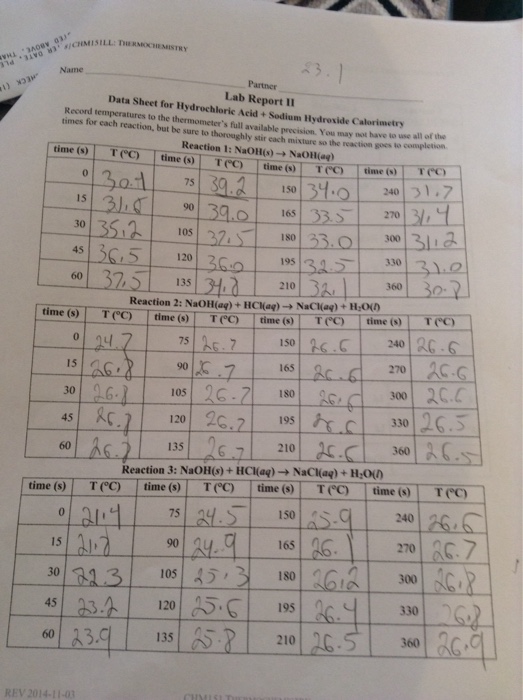 CHM151LL: THERMOCHEMISTRY
23.1
Name
Partner
Lab Report II
Data Sheet for Hydrochloric Acid + Sodium Hydroxide Calorimetry
Record temperatures to the thermometer's full available precision. You may not have to use all of the
times for each reaction, but be sure to thoroughly stir each mixture so the reaction goes to completion.
Reaction 1: NaOH(s) → NaOH(aq)
time (s) T (°C) time (s) T (°C) time (s) T (°C) time (s) T (°C)
0 75 39.2 150 34.0 240 31.7
15 90 39.0 165 33.5 270 31.4
30 35.2 105 37.5 180 33.0 300 31.2
45 36.5 120 36.0 195 32.5 330 31.0
60 37.5 135 210 32.1 360
Reaction 2: NaOH(aq) + HCl(aq) → NaCl(aq) + H₂O(l)
time (s) T (°C) time (s) T (°C) time (s) T (°C) time (s) T (°C)
0 24.7 75 26.7 150 26.6 240 26.6
15 26.8 90 26.7 165 26.6 270 26.6
30 105 26.7 180 26.6 300 26.6
45 120 26.7 195 26.6 330 26.5
60 135 26.7 210 26.6 360 26.5
Reaction 3: NaOH(s) + HCl(aq) → NaCl(aq) + H₂O(l)
time (s) T (°C) time (s) T (°C) time (s) T (°C) time (s) T (°C)
0 21.4 75 24.5 150 25.9 240 26.6
15 90 24.9 165 26.1 270 26.7
30 22.3 105 25.3 180 26.2 300 26.8
45 23.2 120 25.6 195 26.4 330 26.8
60 23.9 135 25.8 210 26.5 360 26.9
REV 2014-11-03